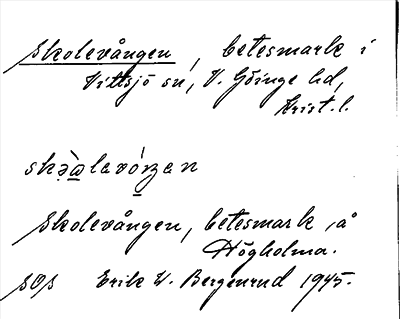 Skolevången, betesmark i
Vittsjö sn, V. Göinge hd,
Krist. l.
Skolevången, betesmark, å
Högholma.
SOS Erik W. Bergenrud 1945.